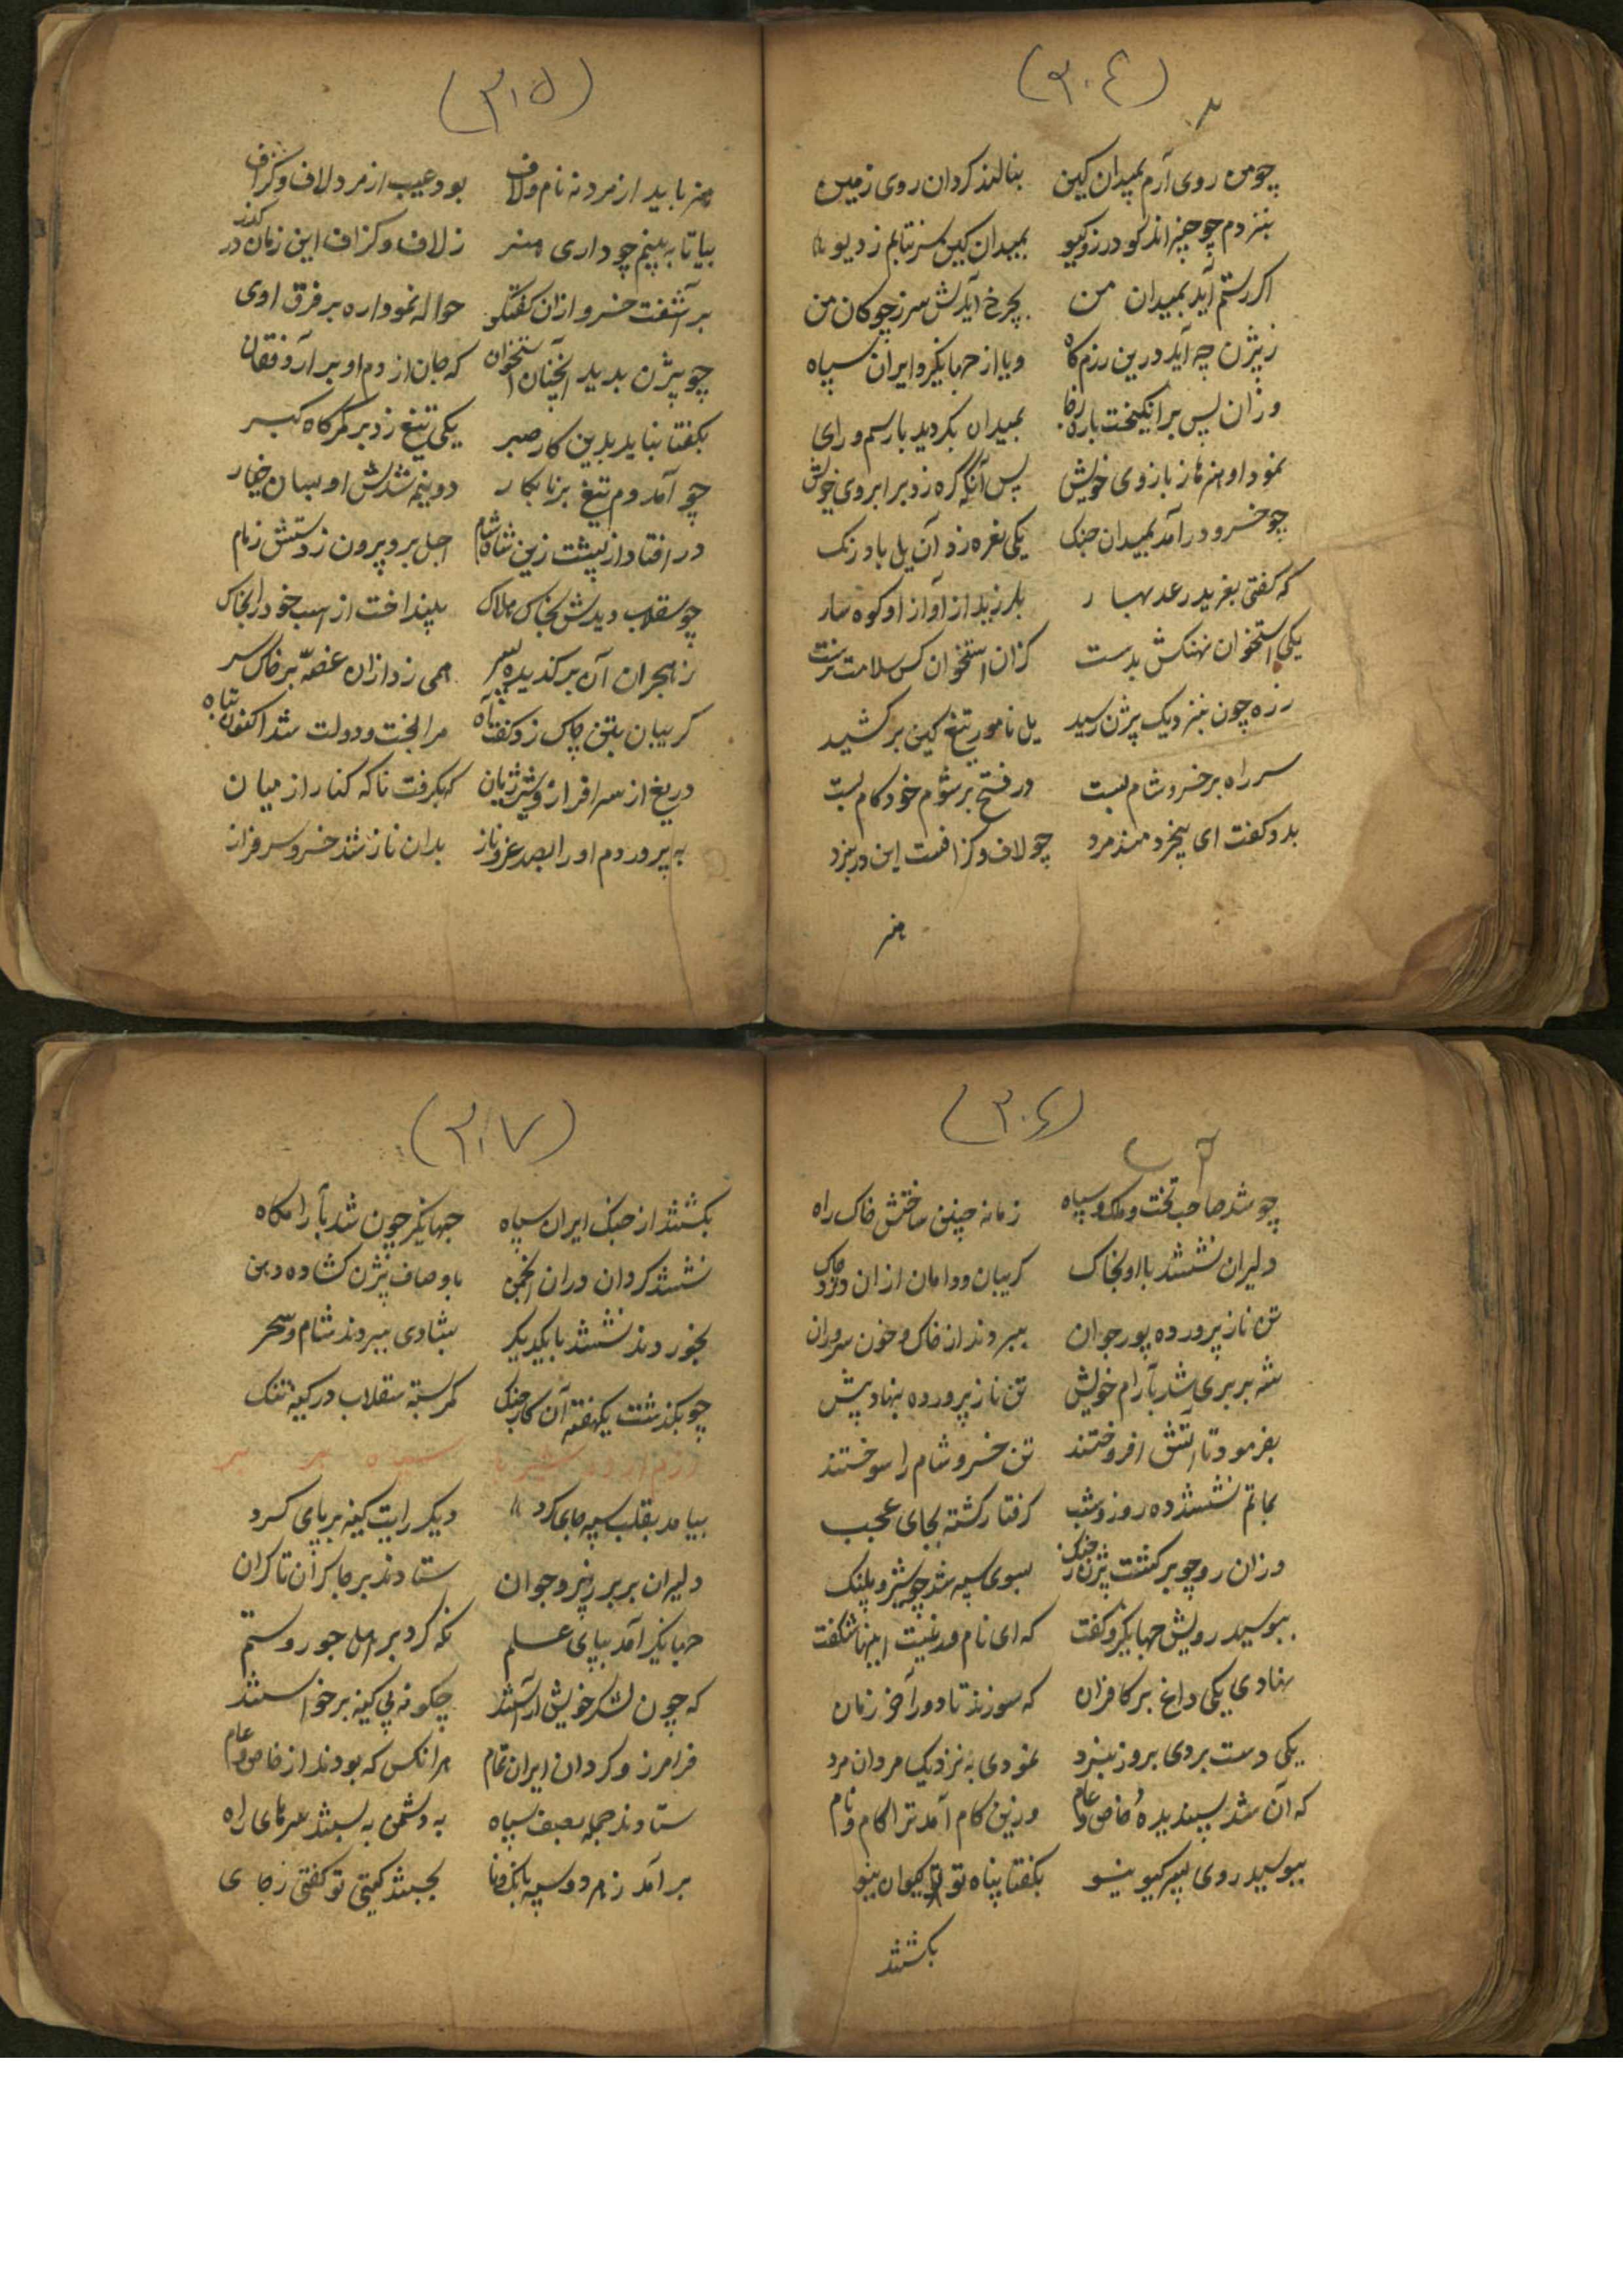 (٣٠٤)
چو من روی آرم بمیدان کین بنالند کردان روی زمین
بنزدم چو چیزاند کودرز و کیو بمیدان کین سر نتابم ز دیو
اکر رستم آید بمیدان من بچرخ آیدش سر ز چوکان من
ز بیژن چه آید درین رزمکاه و یا از جهانکیر و ایران سپاه
وزان پس برانکیخت باره ز جا بمیدان بکردید با رسم و رای
نمود او هنرها ز بازوی خویش پس آنکه کره زد بر ابروی خویش
چو خسرو درآمد بمیدان جنک یکی نعره زد آن یل باد رنک
که کفتی بغرید رعد بهار بلرزید از آواز او کوهسار
یکی استخوان نهنکش بدست کزان استخوان کس سلامت نرست
زره چون بنزدیک بیژن رسید یل نامور تیغ کین برکشید
سر راه بر خسرو شام بست در فتح بر شوم خودکام بست
بدو کفت ای بیخرد مند مرد چو لاف و کزافست این در نبرد
هنر
(٣٠٥)
هنر باید از مرد نه نام و لاف بود عیب از مرد لاف و کزاف
بیا تا به بینم چو داری هنر ز لاف و کزاف این زمان در کذر
برآشفت خسرو ازان کفتکو حواله نمود اره بر فرق اوی
چو بیژن بدید آنچنان استخوان که جان از دم او برآرد فغان
بکفتا نباید بدین کار صبر یکی تیغ زد بر کمرکاه کبر
چو آمد دم تیغ بر نابکار دو نیم شدش او بسان خیار
در افتاد از پشت زین شاه شام اجل برد بیرون ز دستش زمام
چو سقلاب دیدش بخاک هلاک بینداخت از اسب خود را بخاک
ز هجران آن برکزیده پسر همی زد ازان غصه بر خاک سر
کریبان بتن چاک زد کفت آه مرا بخت و دولت شد اکنون تباه
دریغ از سرافراز و شیر ژیان که بکرفت ناکه کنار از میان
به پروردم او را بصد عز و ناز بدان ناز شد خسرو سرفراز
(٣٠٦)
چو شد صاحب تخت و ملک و سپاه زمانه چنین ساختش خاک راه
دلیران نشستند با او بخاک کریبان و دامان ازان درد چاک
تن ناز پرورده پور جوان ببردند از خاک و خون سروران
شه بربری شد بآرام خویش تن ناز پرورده بنهاد پیش
بفرمود تا آتش افروختند تن خسرو شام را سوختند
بماتم نشستند ده روز و شب کرفتار کشته بجای عجب
وزان رو چو برکشت بیژن ز جنک بسوی سپه شد چو شیر و پلنک
ببوسید رویش جهانکیر و کفت که ای نام
نهادی یکی داغ بر کافران که سوزند تا دور آخر زمان
یکی دست بردی بروز نبرد نمودی به نزدیک مردان مرد
که آن شد پسندیدهٔ خاص و عام وزین کام آمد ترا کام و نام
ببوسید روی پسر کیو نیو بکفتا پناه تو کیوان نیو
بکشتند
(٣٠٧)
بکشتند از جنک ایران سپاه جهانکیر چون شد بآرامکاه
نشستند کردان دران انجمن باوصاف بیژن کشاده دهن
بخوردند نشستند با یکدیکر بشادی ببردند شام و سحر
چو بکذشت یکهفته آن کار جنک کمر بسته سقلاب در کینه تنک
بیامد بقلب سپه جای کرد دیکر رایت کینه بر پای کرد
دلیران بربر ز پیر و جوان ستادند بر جا کران تا کران
جهانکیر آمد بپای علم نکه کرد بر اهل جور و ستم
که چون لشکر خویش آراستند چکونه پی کینه برخواستند
فرامرز و کردان ایران تمام هرانکس که بودند از خاص و عام
ستادند جمله بصف سپاه به دشمن به بستند سر های راه
برآمد ز هر دو سپه بانک و نا بجنبند کیتی تو کفتی ز جای